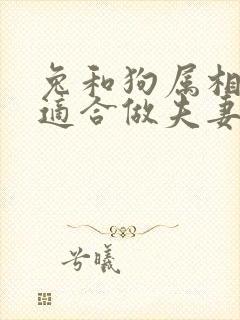 兔和狗属相
适合做夫妻
兮曦